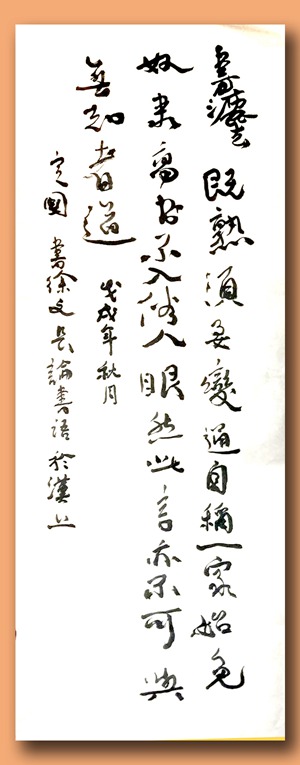 書灋既熟須要變通自稱一家始免
奴隶高书不入俗人眼然此言亦不可與
無知者道 戊戌年秋月
定國 書徐文長論書語於漢上